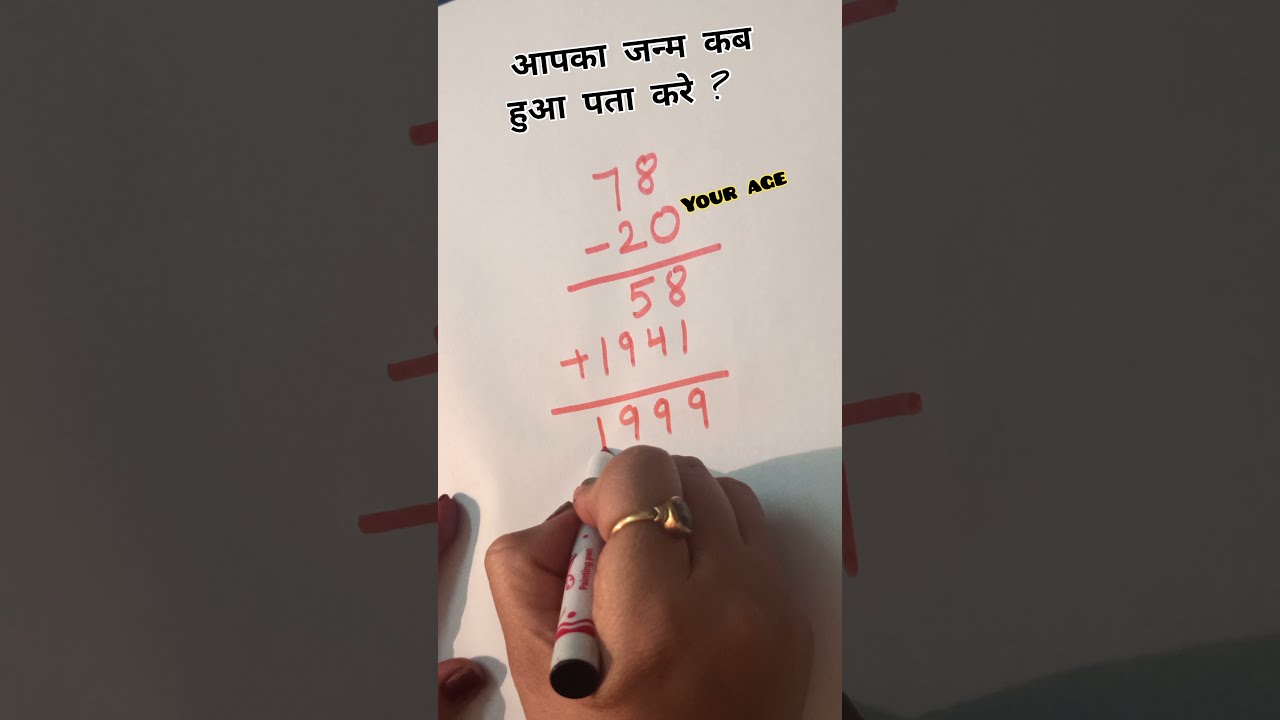 आपका जन्म कब
हुआ पता करे ?
78
-20 YOUR AGE
58
+1941
1999
Painting pen